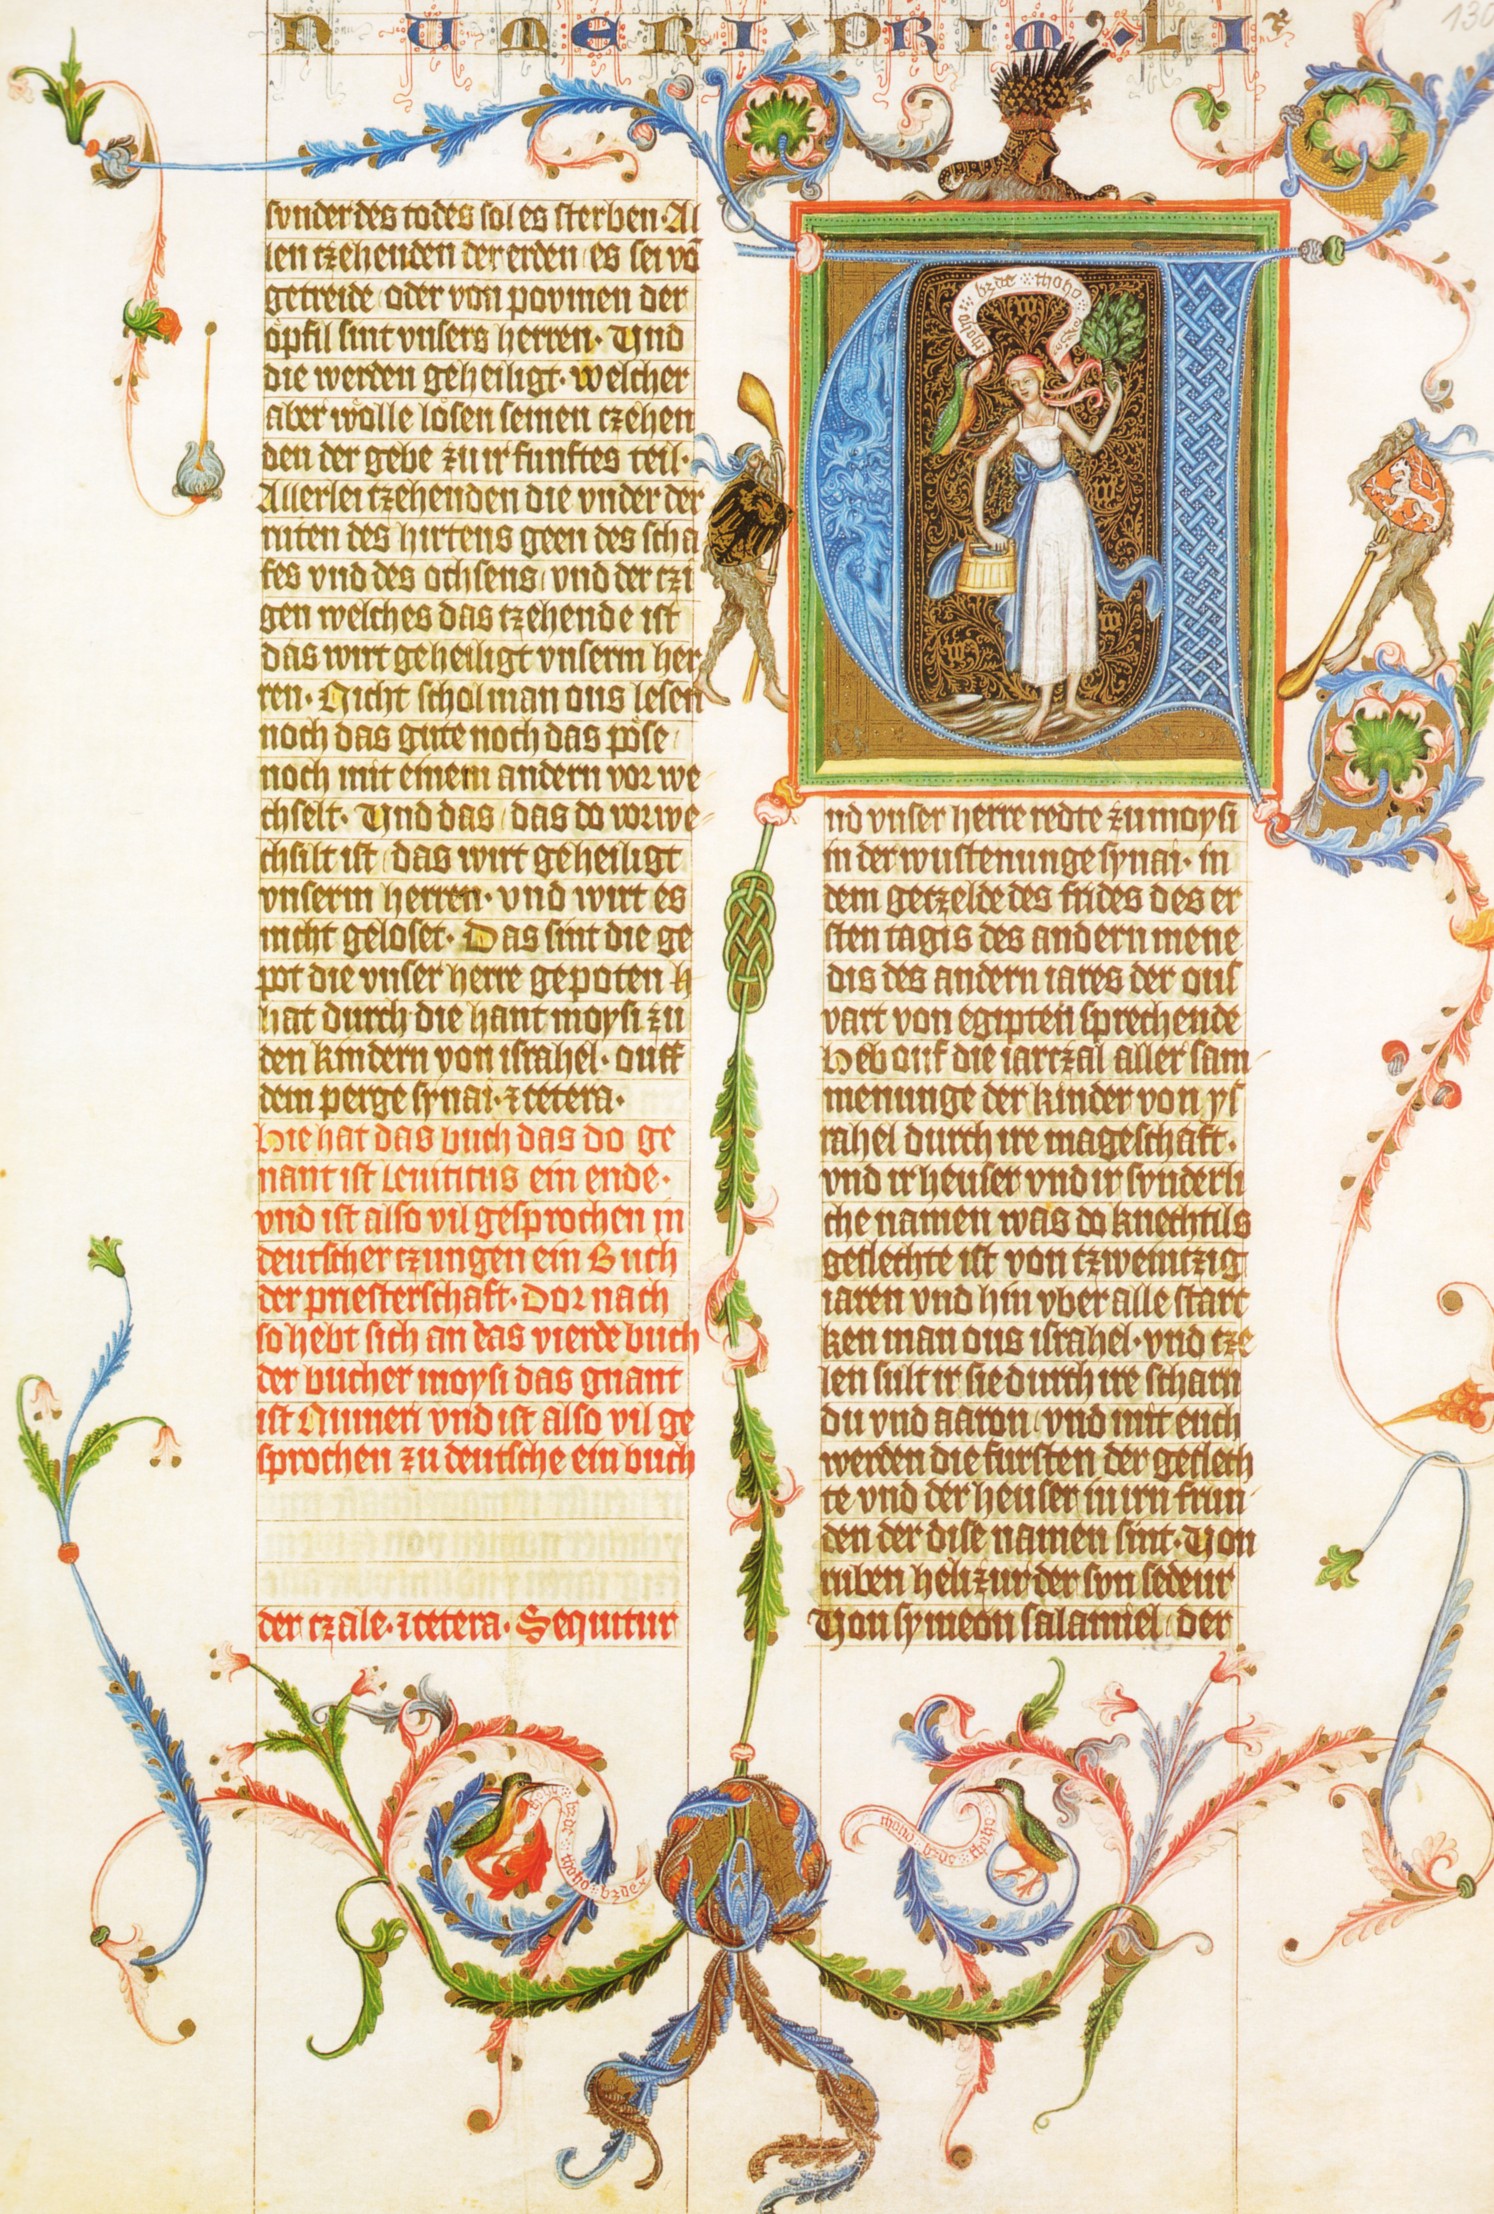 NUMERI · PRIM9 · LIr
130
sunder des todes sol es sterben · Al
len tzehenden der erden es sei võ
getreide oder von povmen der
opfil sint vnsers herren · Und
die werden geheiligt · welcher
aber wolle losen seinen czehen
den der gebe zu ir funftes teil ·
Allerlei tzehenden die vnder der
ruten des hirtens geen des scha
fes vnd des ochsens vnd der czi
gen welches das tzehende ist
das wirt geheiligt vnserm her
ren · Nicht schol man ous lesen
noch das gute noch das pose
noch mit einem andern vor we
chselt · Und das das do vorwe
chsilt ist das wirt geheiligt
vnserm herren · vnd wirt es
nicht geloset · Das sint die ge
pot die vnser herre gepoten h
hat durch die hant moysi zu
den kindern von israhel · ouff
dem perge synai · ⁊ cetera ·
Hie hat das buch das do ge
nant ist Leuiticus ein ende ·
vnd ist also vil gesprochen in
deutscher tzungen ein Buch
der priesterschaft · Dor nach
so hebt sich an das vierde buch
der bucher moysi das gnant
ist Numeri vnd ist also vil ge
sprochen zu deutsche ein buch
der czale · ⁊ cetera · Sequitur
toho bzde toho
U
nd vnser herre redte zu moysi
in der wustenunge synai · in
dem getzelde des frides des er
sten tagis des andern mene
dis des andern iares der ous
vart von egipten sprechende
Heb ouf die iarczal aller sam
menunge der kinder von ys
rahel durch ire mageschaft ·
vnd ir heuser vnd ir synderli
che namen was do knechtils
geslechte ist von tzwentzig
iaren vnd hin vber alle starc
ken man ous israhel · vnd tze
len sult ir sie durch ire scharn
du vnd aaron vnd mit euch
werden die fursten der geslech
te vnd der heuser in irn frun
den der dise namen sint · Von
ruben helizur der son sedeur
Von symeon salamiel der
toho bzde toho bzde
toho bzde toho